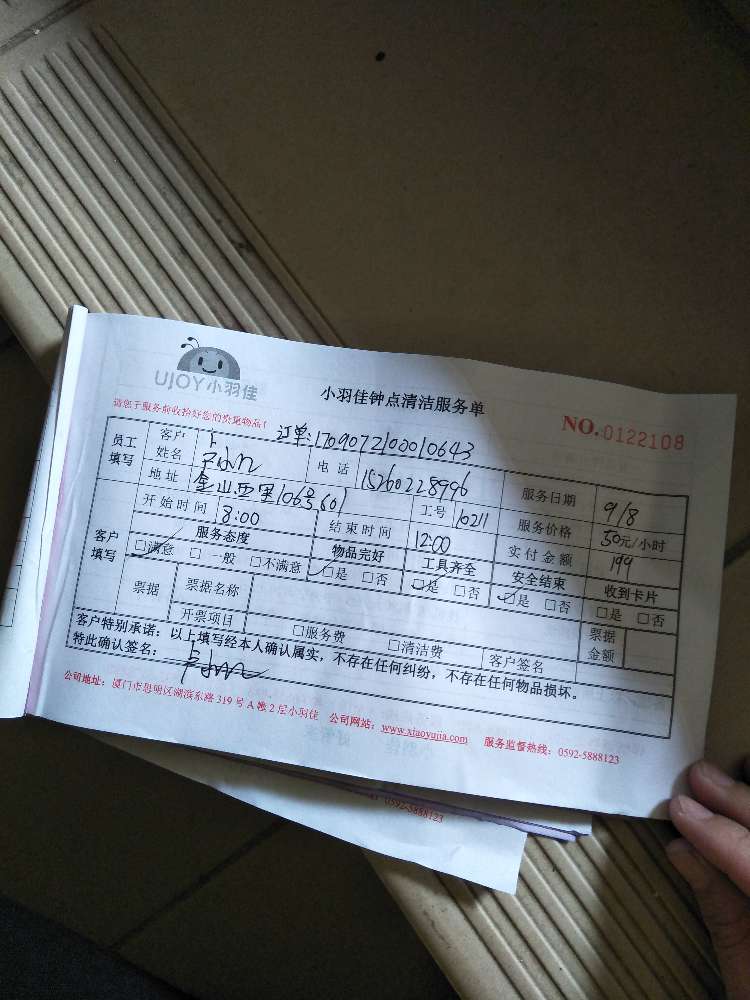 UJOY小羽佳
小羽佳钟点清洁服务单
请您于服务前收拾好您的贵重物品!
NO.0122108
订单:1709072100010643
员工填写 客户姓名 电话 15260228996 服务日期 9/8
地址 金山西里106号601 工号 10211 服务价格 50元/小时
开始时间 8:00 结束时间 12:00 实付金额 199
客户填写 服务态度 物品完好 工具齐全 安全结束 收到卡片
□满意 □一般 □不满意 □是 □否 □是 □否 □是 □否 □是 □否
票据 票据名称 票据金额
开票项目 □服务费 □清洁费 客户签名
客户特别承诺:以上填写经本人确认属实,不存在任何纠纷,不存在任何物品损坏。
特此确认签名:
公司地址:厦门市思明区湖滨东路319号A幢2层小羽佳 公司网站:www.xiaoyujia.com 服务监督热线:0592-5888123
0592-5888123